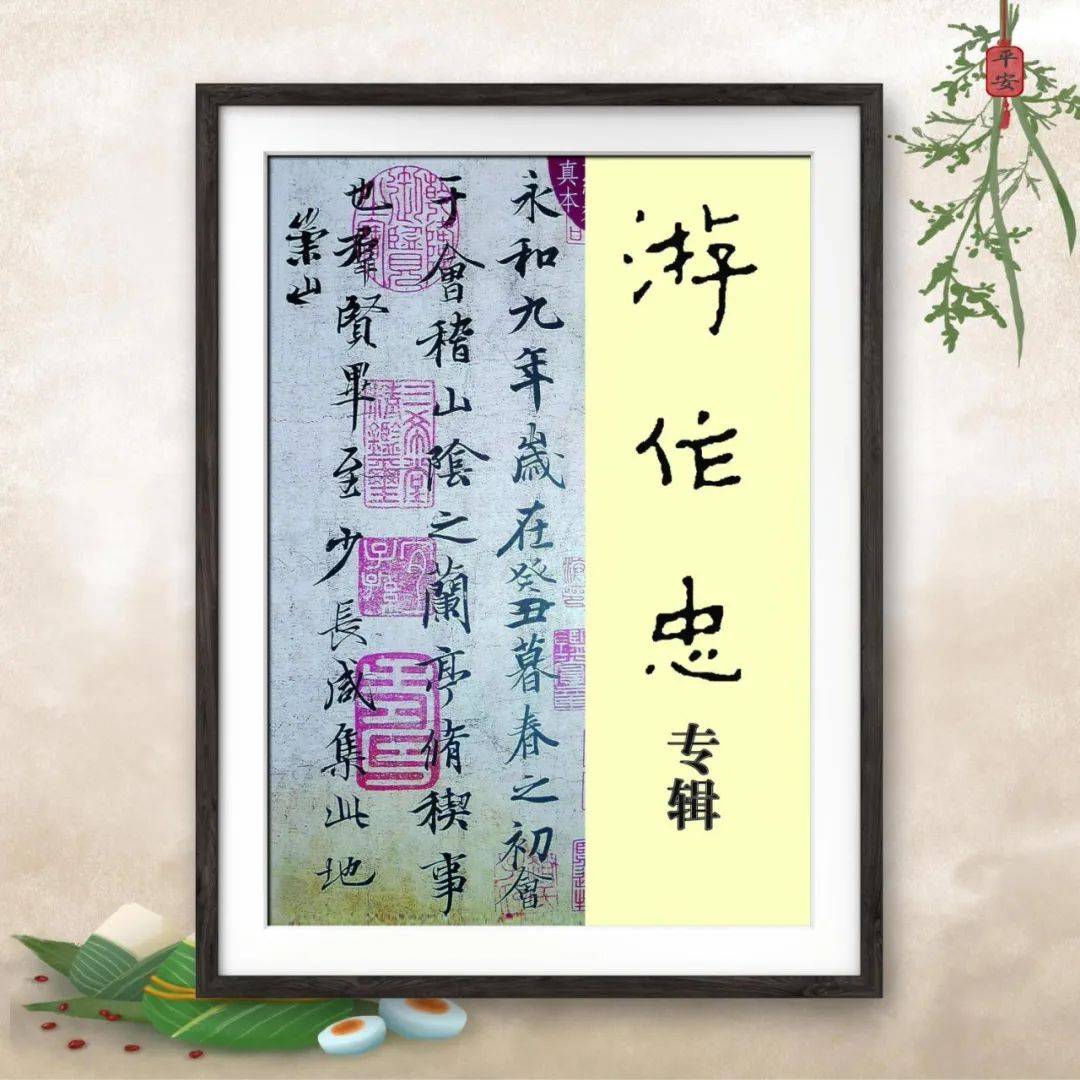 平安
游作忠
专辑
真本
永和九年歲在癸丑暮春之初會
于會稽山陰之蘭亭脩稧事
也羣賢畢至少長咸集此地
崇山
三希堂精鑑璽
宜子孫